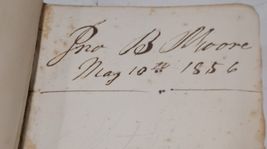 Jno B Moore
May 10th 1856